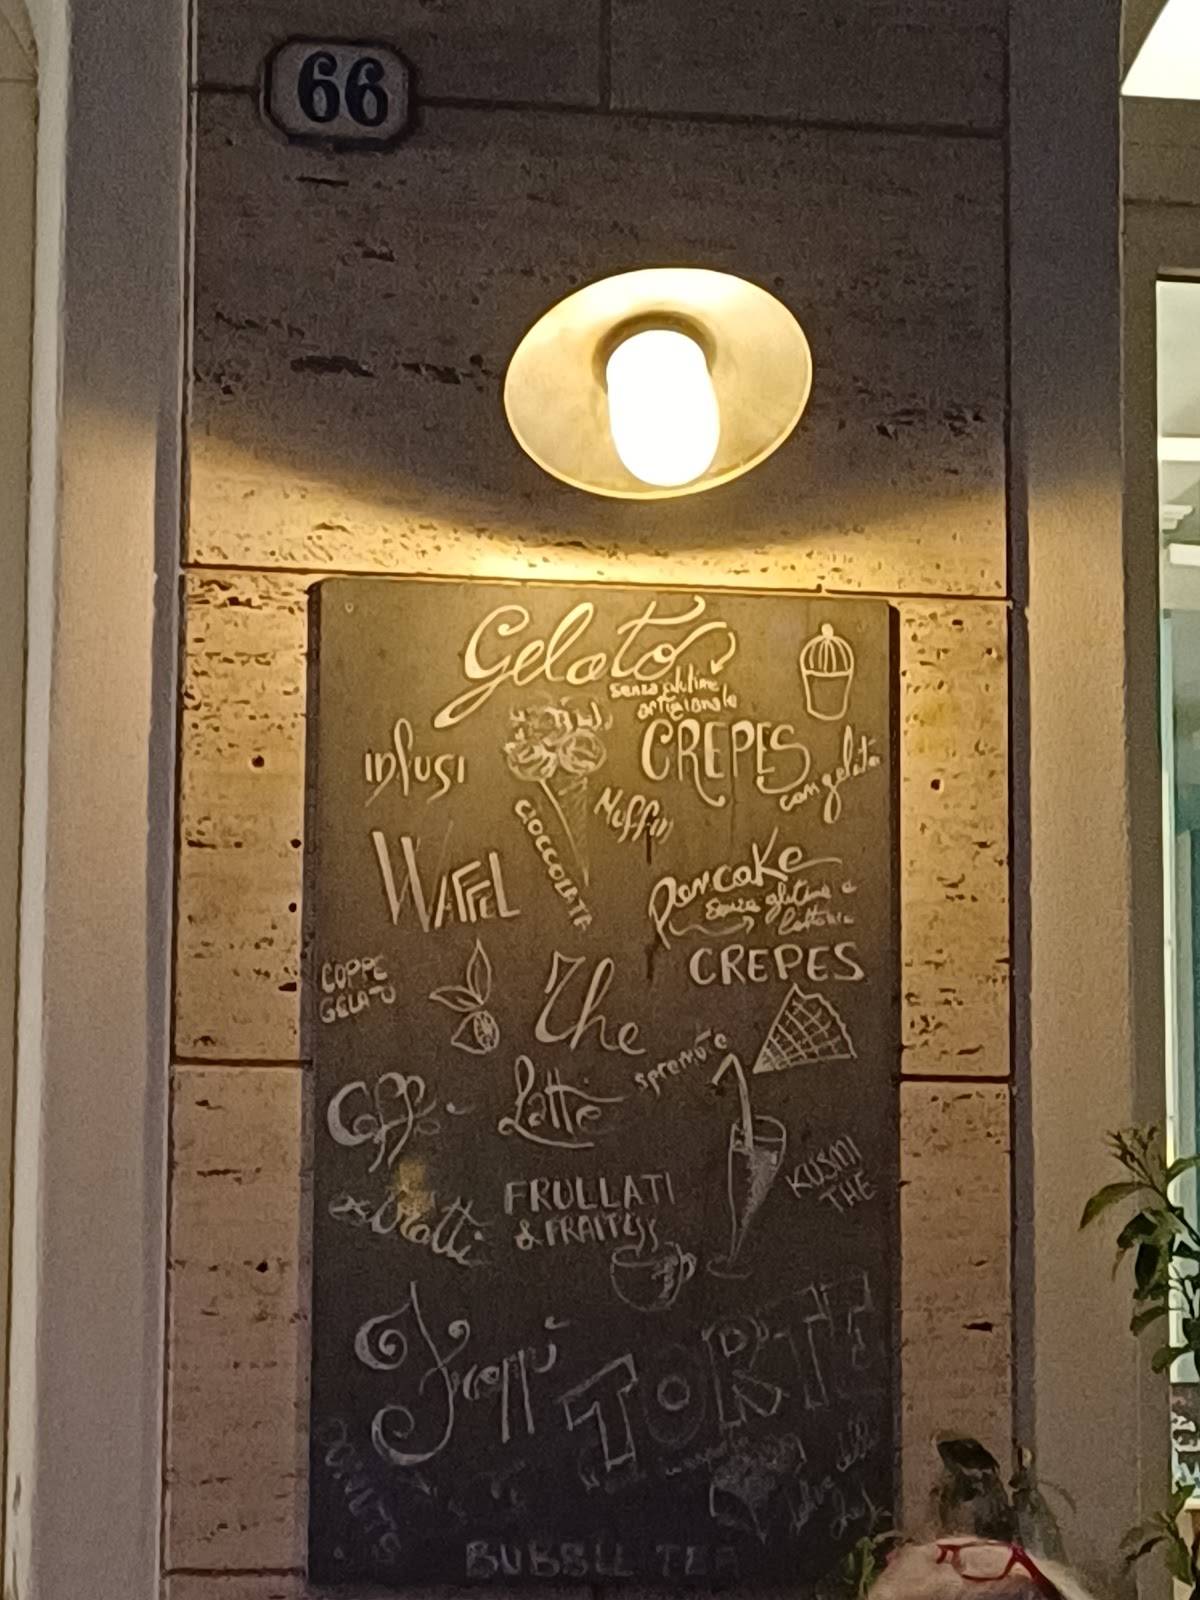 66
Gelato
senza glutine
artigianale
infusi
CREPES
con gelato
CIOCCOLATA
Muffin
WAFFEL
Pancake
senza glutine e
COPPE
GELATO
The
CREPES
spremute
Latte
KUSMI
THE
FRULLATI
Frappi
TORTE
BUBBLE TEA